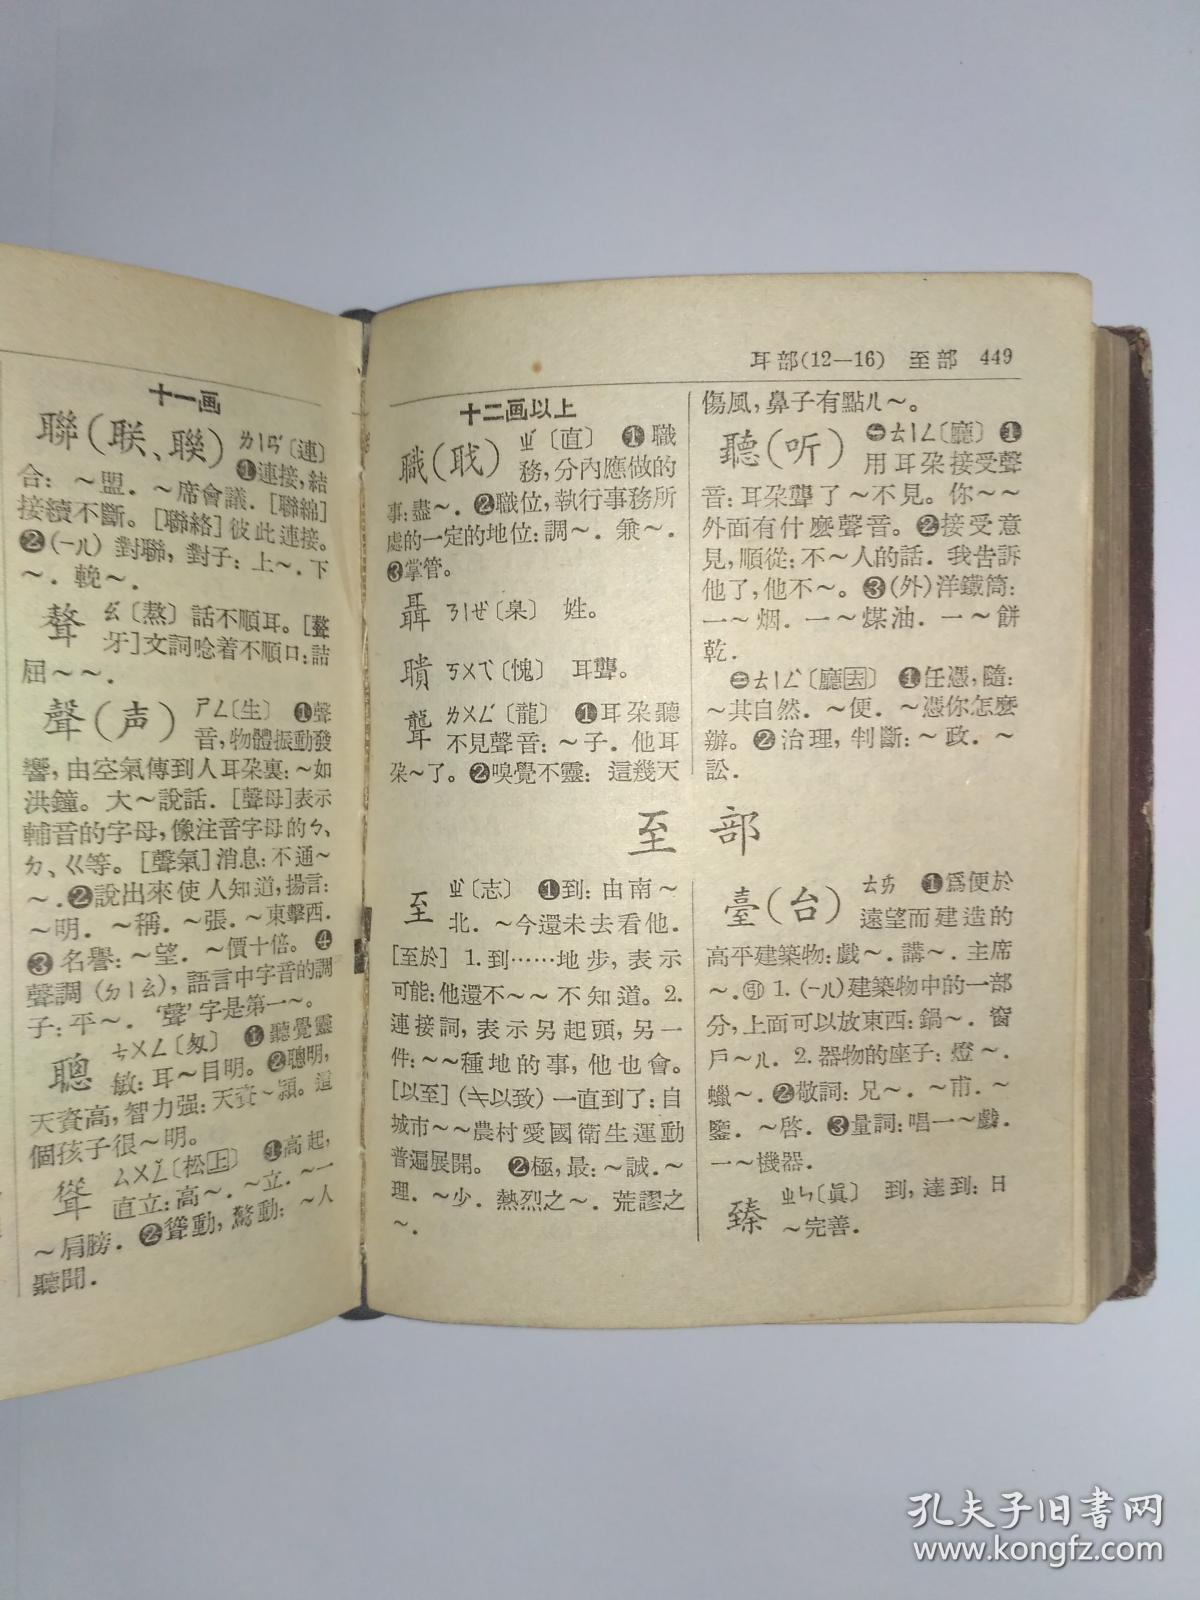 十一画
聯(联、聨) ㄌㄧㄢˊ〔連〕
❶連接,結
合: ～盟. ～席會議. [聯綿]
接續不斷。[聯絡]彼此連接。
❷(一儿)對聯, 對子: 上～. 下
～. 輓～.
聱 ㄠˊ〔熬〕話不順耳。[聱
牙]文詞唸着不順口: 詰
屈～～.
聲(声) ㄕㄥ〔生〕 ❶聲
音, 物體振動發
響, 由空氣傳到人耳朶裏: ～如
洪鐘。大～說話. [聲母]表示
輔音的字母, 像注音字母的ㄅ、
ㄉ、ㄍ等。[聲氣]消息: 不通～
～. ❷說出來使人知道, 揚言:
～明. ～稱. ～張. ～東擊西.
❸名譽: ～望. ～價十倍。❹
聲調(ㄉㄧㄠ), 語言中字音的調
子: 平～. '聲'字是第一～。
聰 ㄘㄨㄥ〔匆〕 ❶聽覺靈
敏: 耳～目明。❷聰明,
天資高, 智力强: 天資～穎。這
個孩子很～明。
聳 ㄙㄨㄥˇ〔松上〕 ❶高起,
直立: 高～. ～立. ～一
～肩膀. ❷聳動, 驚動: ～人
聽聞.
耳部(12—16) 至部 449
十二画以上
職(耺) ㄓˊ〔直〕 ❶職
務, 分內應做的
事: 盡～. ❷職位, 執行事務所
處的一定的地位: 調～. 兼～.
❸掌管。
聶 ㄋㄧㄝˋ〔臬〕 姓。
聵 ㄎㄨㄟˋ〔愧〕 耳聾。
聾 ㄌㄨㄥˊ〔龍〕 ❶耳朶聽
不見聲音: ～子. 他耳
朶～了。❷嗅覺不靈: 這幾天
傷風, 鼻子有點儿～。
聽(听) ㊀ㄊㄧㄥ〔廳〕 ❶
用耳朶接受聲
音: 耳朶聾了～不見。你～～
外面有什麽聲音。❷接受意
見, 順從: 不～人的話. 我吿訴
他了, 他不～。❸(外)洋鐵筒:
一～烟. 一～煤油. 一～餅
乾.
㊁ㄊㄧㄥˋ〔廳去〕 ❶任憑, 隨:
～其自然. ～便. ～憑你怎麽
辦。❷治理, 判斷: ～政. ～
訟.
至部
至 ㄓˋ〔志〕 ❶到: 由南～
北. ～今還未去看他.
[至於] 1. 到……地步, 表示
可能: 他還不～～不知道。2.
連接詞, 表示另起頭, 另一
件: ～～種地的事, 他也會。
[以至] (≠以致) 一直到了: 自
城市～～農村愛國衛生運動
普遍展開。❷極, 最: ～誠. ～
理. ～少. 熱烈之～. 荒謬之
～.
臺(台) ㄊㄞˊ ❶爲便於
遠望而建造的
高平建築物: 戲～. 講～. 主席
～. 引 1. (一儿)建築物中的一部
分, 上面可以放東西: 鍋～. 窗
戶～儿. 2. 器物的座子: 燈～.
蠟～. ❷敬詞: 兄～. ～甫. ～
鑒. ～啓. ❸量詞: 唱一～戲.
一～機器.
臻 ㄓㄣ〔眞〕 到, 達到: 日
～完善.
孔夫子旧书网
www.kongfz.com